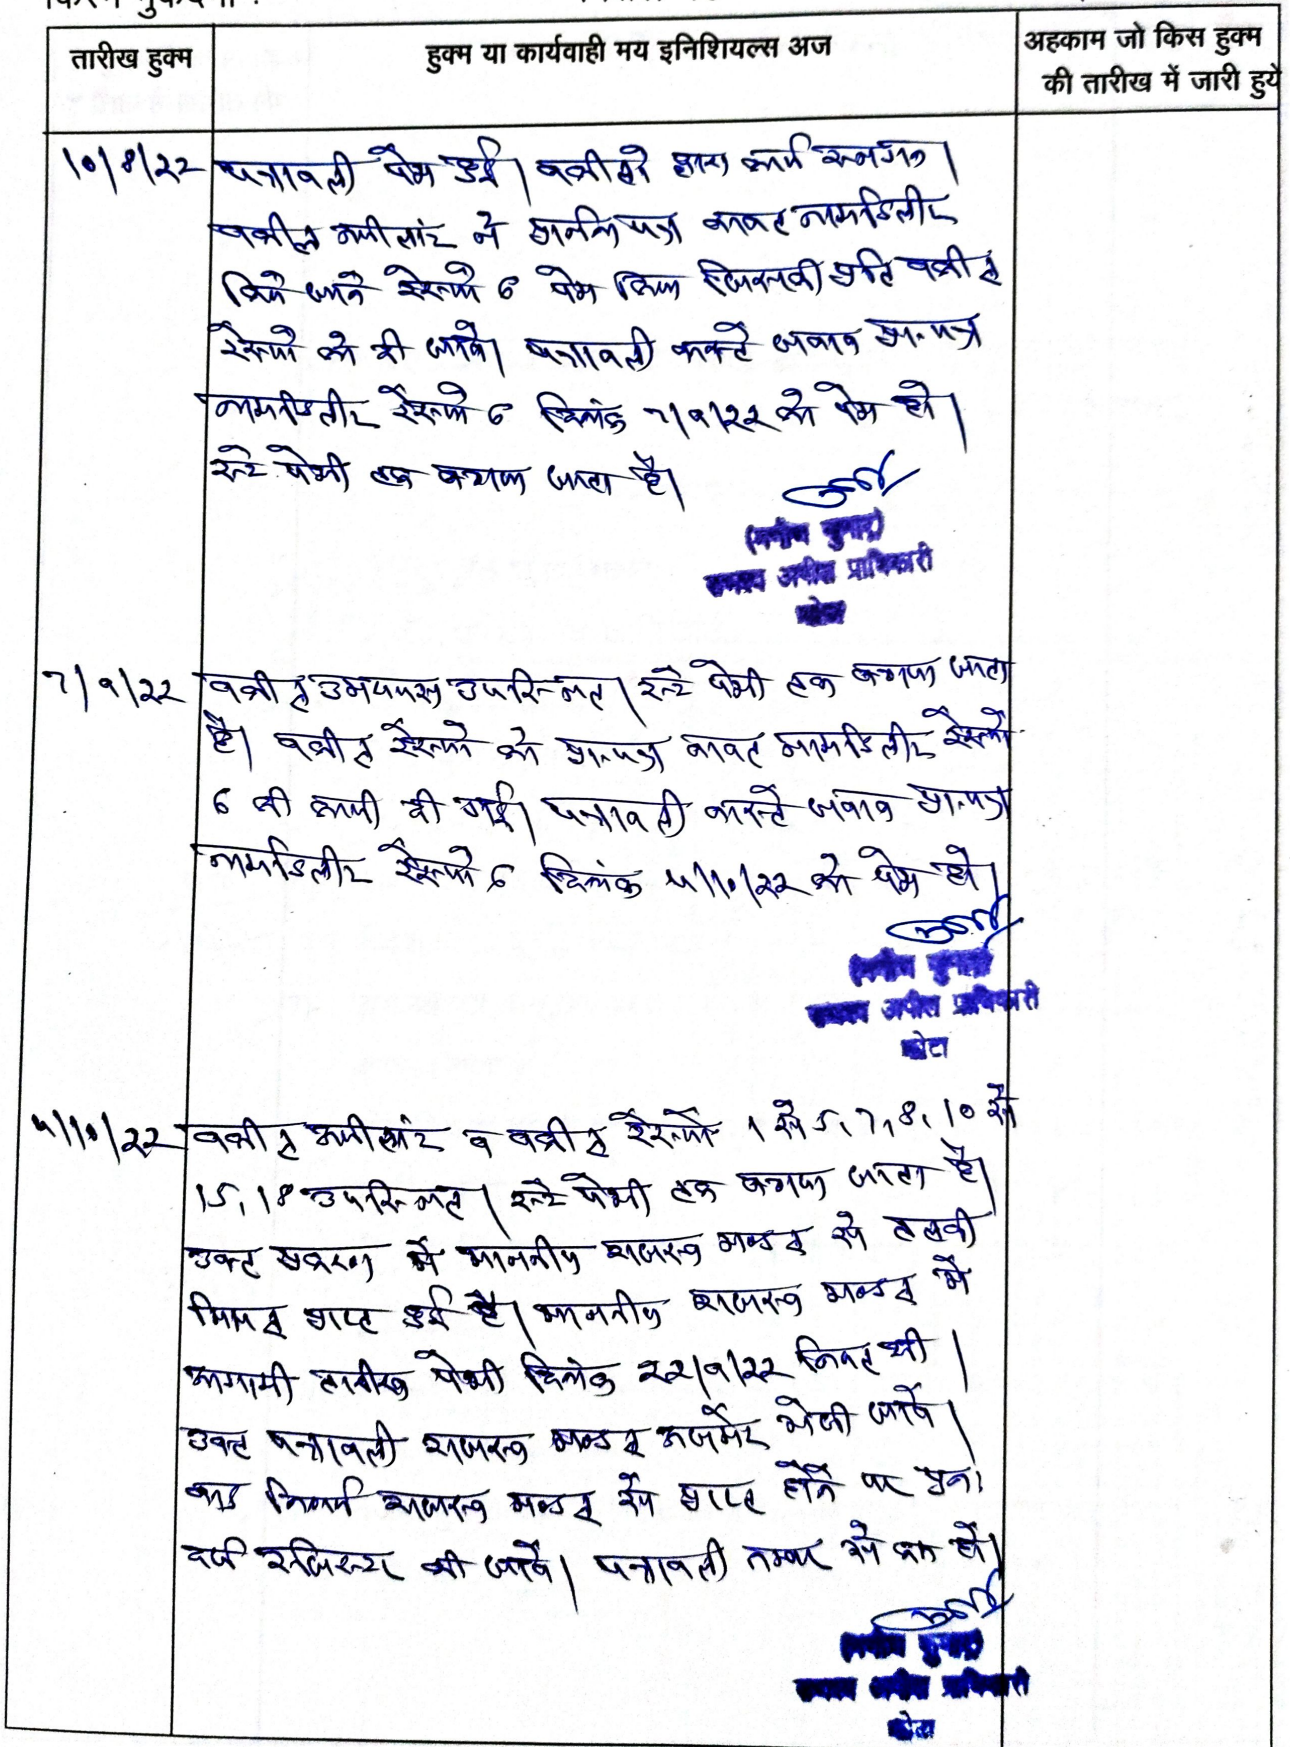 तारीख हुक्म
हुक्म या कार्यवाही मय इनिशियल्स अज
अहकाम जो किस हुक्म
की तारीख में जारी हुये
10/8/22 पत्रावली पेश हुई। वकीलो द्वारा कार्य स्थगन।
वकील अपीलांट ने प्रार्थना पत्र बाबत नामडिलीट
किये जाने रेस्पो 6 पेश किया जिसकी प्रति वकील
रेस्पो को दी जावे। पत्रावली वास्ते जवाब प्रा.पत्र
नामडिलीट रेस्पो 6 दिनांक 7/9/22 को पेश हो।
स्टे पेशी तक बढाया जाता है।
राजस्व अपील प्राधिकारी
कोटा
7/9/22 वकील उभयपक्ष उपस्थित। स्टे पेशी तक बढाया जाता
है। वकील रेस्पो को प्रा.पत्र बाबत नामडिलीट रेस्पो
6 की कापी दी गई। पत्रावली वास्ते जवाब प्रा.पत्र
नामडिलीट रेस्पो 6 दिनांक 4/10/22 को पेश हो।
राजस्व अपील प्राधिकारी
कोटा
4/10/22 वकील अपीलांट व वकील रेस्पो 1 से 5, 7, 8, 10 से
15, 18 उपस्थित। स्टे पेशी तक बढाया जाता है।
उक्त प्रकरण में माननीय राजस्व मण्डल से तलबी
मिसल प्राप्त हुई है। माननीय राजस्व मण्डल में
आगामी तारीख पेशी दिनांक 22/9/22 नियत थी।
उक्त पत्रावली राजस्व मण्डल अजमेर भेजी जावे।
बाद निर्णय राजस्व मण्डल से प्राप्त होने पर पुनः
दर्ज रजिस्टर की जावे। पत्रावली नम्बर से कम हो।
राजस्व अपील प्राधिकारी
कोटा